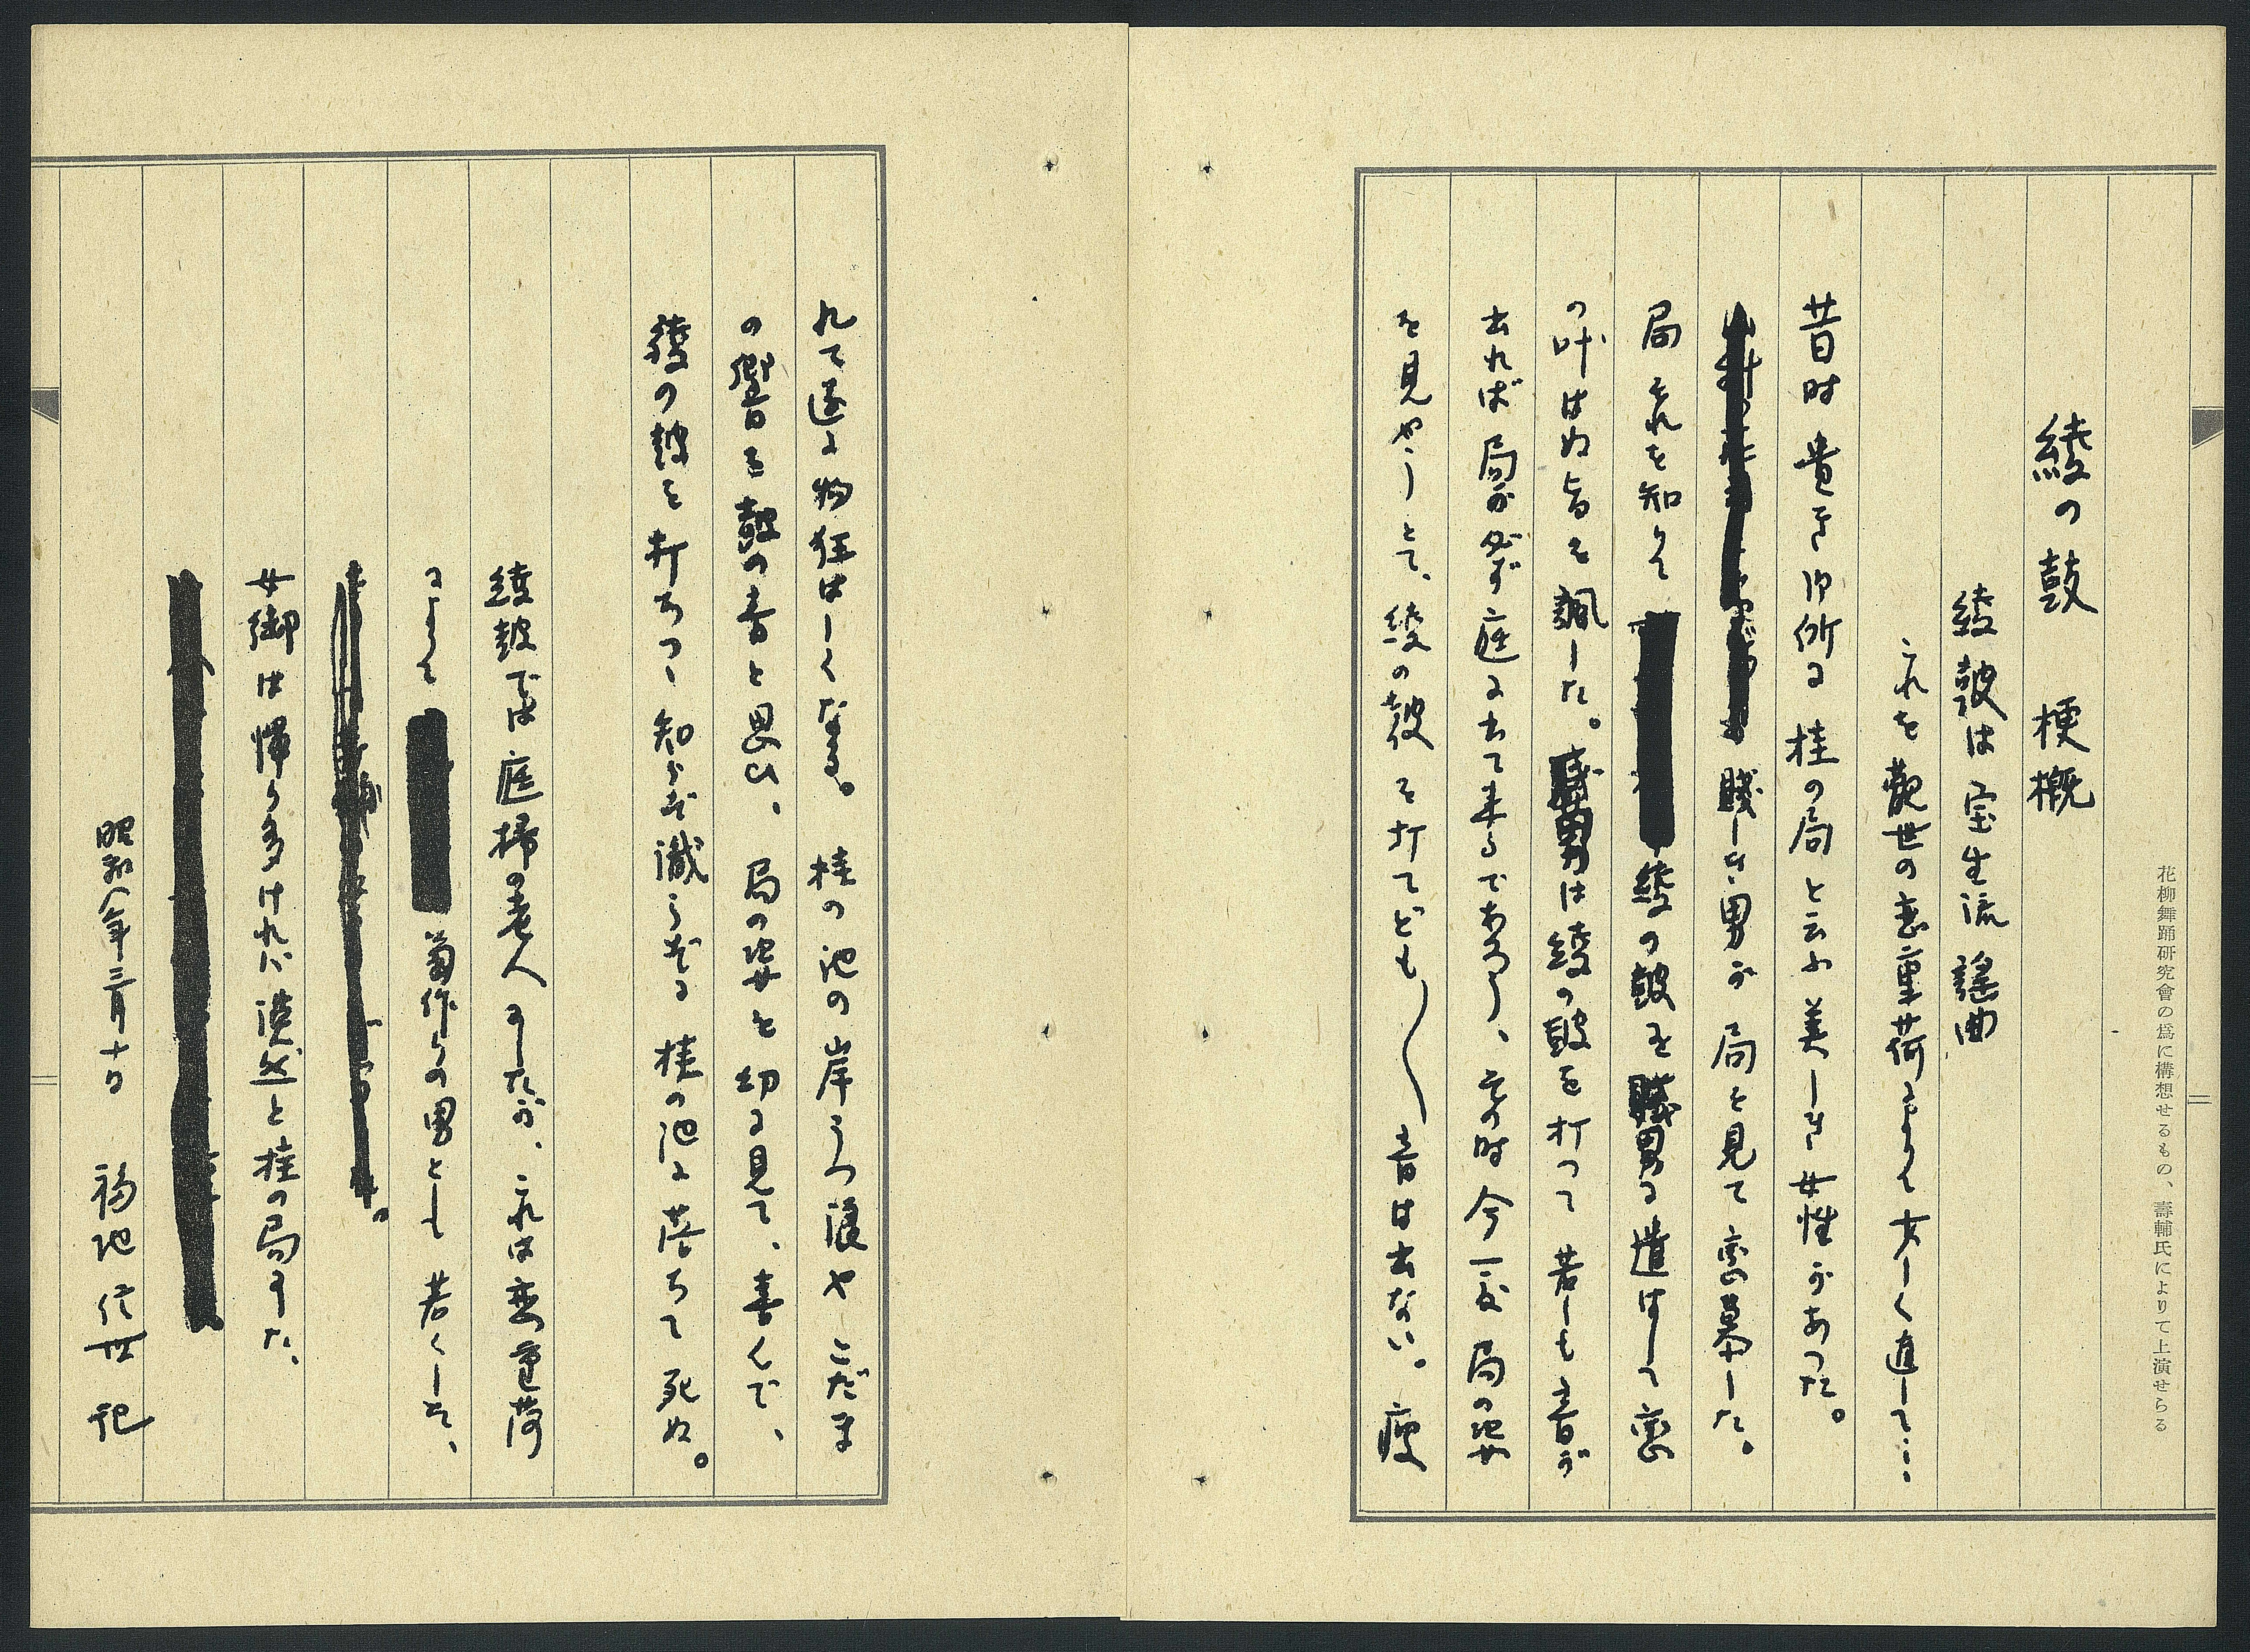 花柳舞踊研究會の爲に構想せるもの、壽輔氏によりて上演せらる
綾の鼓 梗概
綾鼓は宝生流 謠曲
これを観世の恋重荷によりて少しく直して…。
昔時 貴き御所に 桂の局と云ふ美しき女性があつた。
賤しき男が 局を見て 恋慕した。
局 それを知りて 綾の鼓を賤男に遣はして 恋
の叶はぬ旨を諷した。賤男は綾の鼓を打つて 若しも音が
出れば 局が必ず庭に出て来るであらうし、その時 今一度 局の姿
を見やうとて、綾の鼓を打てども〳〵音は出ない。疲
れて遂に物狂はしくなる。 桂の池の岸うつ浪や こだま
の響を 鼓の音と思ひ、局の姿を幻に見て、喜んで、
綾の鼓を打ちつゝ知らず識らずに 桂の池に落ちて 死ぬ。
綾鼓では 庭掃の老人ましたが、これは恋重荷
によりて 菊作りの男として 若くした、
女御は憚り多ければ 漠然と桂の局ました、
昭和八年三月十日 福地信世 記